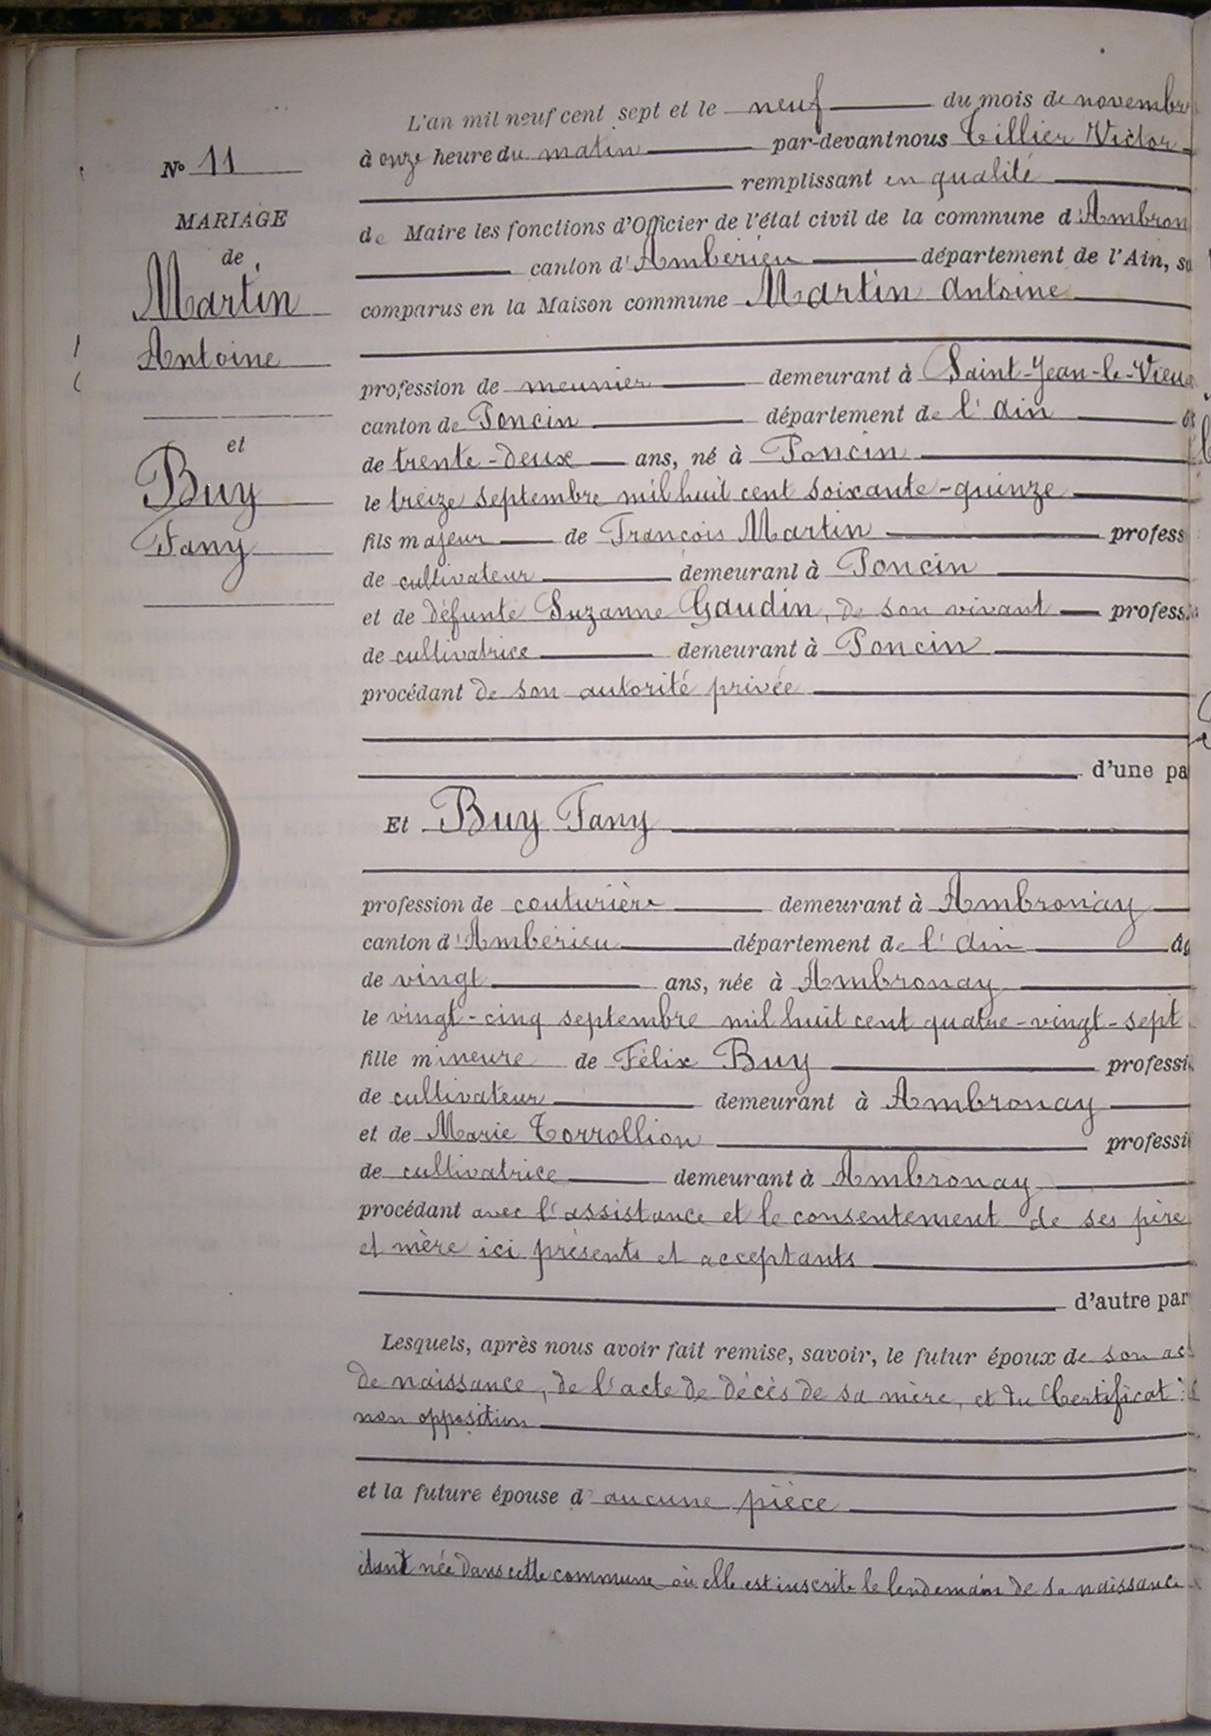 L'an mil neuf cent sept et le neuf du mois de novembre
No 11
à onze heure du matin par-devant nous Tillier Victor
remplissant en qualité
MARIAGE
de Maire les fonctions d'Officier de l'état civil de la commune d'Ambron
de
canton d'Ambérieu département de l'Ain, so
Martin
comparus en la Maison commune Martin Antoine
Antoine
profession de meunier demeurant à Saint-Jean-le-Vieux
canton de Poncin département de l'Ain
et
de trente-deux ans, né à Poncin
Buy
le treize septembre mil huit cent soixante-quinze
Fany
fils majeur de François Martin profess
de cultivateur demeurant à Poncin
et de défunte Suzanne Gaudin, de son vivant profess
de cultivatrice demeurant à Poncin
procédant de son autorité privée
d'une pa
Et Buy Fany
profession de couturière demeurant à Ambronay
canton d'Ambérieu département de l'Ain âg
de vingt ans, née à Ambronay
le vingt-cinq septembre mil huit cent quatre-vingt-sept
fille mineure de Félix Buy professi
de cultivateur demeurant à Ambronay
et de Marie Torrollion professi
de cultivatrice demeurant à Ambronay
procédant avec l'assistance et le consentement de ses père
et mère ici présents et acceptants
d'autre par
Lesquels, après nous avoir fait remise, savoir, le futur époux de son ac
de naissance, de l'acte de décès de sa mère, et du Certificat
non opposition
et la future épouse d'aucune pièce
étant née dans cette commune où elle est inscrite le lendemain de sa naissance